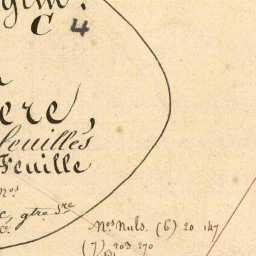 C 4
ere,
feuilles
Feuille
nos
gtre sre
Nos Nuls. (6) 20 147
(7) 203 270